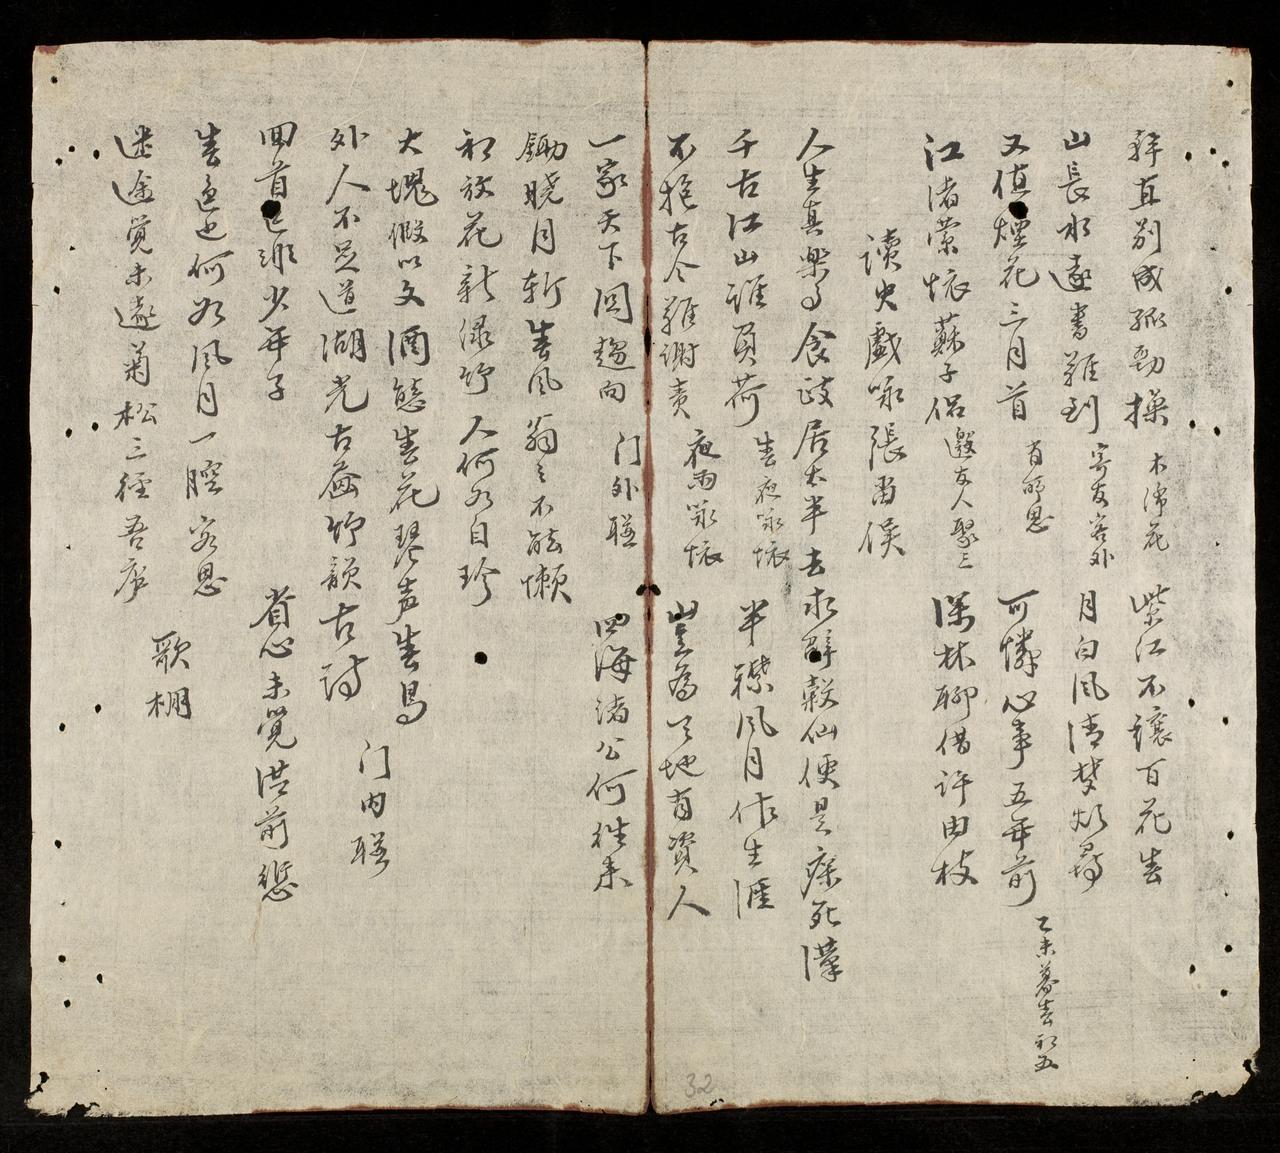 直別成孤勁操 木沛花 柴江不讓百花春
山長水遠書難到 寄友答外 月白風清梦
又值煙花三月首 有所思 可憐心事五年前 乙未暮春初五
江渚縈懷蘇子侶 邀友人聚三 深林聊借許由枝
讀史戲咏張留侯
人生真樂 食 居太半去求辟穀仙便是 死漢
千古江山誰負荷 春夜咏懷 半襟風月作生涯
不 古今難謝責 夜雨咏懷 豈為天地有資人
一家天下同趨向 门外聯 四海諸公何往来
鋤曉月斬春風 翁不能懒
初放花新渌竹人何以自珍
大塊假以文酒態春花琴声春鳥
外人不足道湖光古 竹韻古詩 门内聯
回首 非少年子 省心未覚 前愆
春色 何如風月一腔 客思
迷途覚未遠菊松三徑吾 歌棚
32